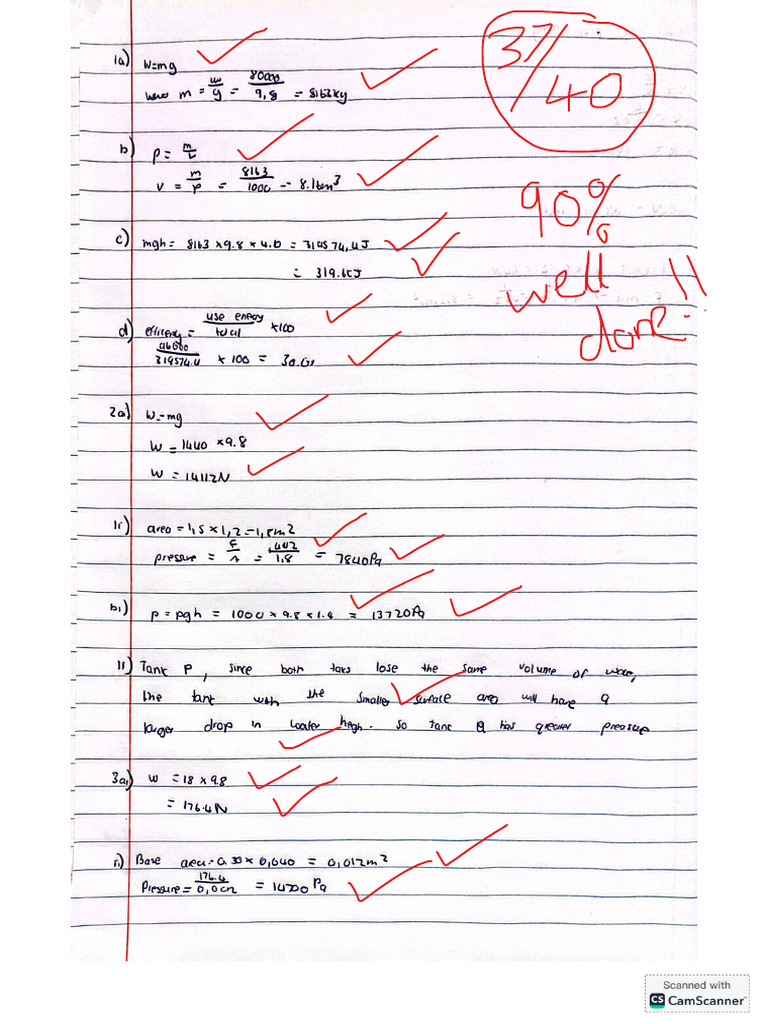 37/40
1a) W=mg
m = w/g = 80000/9,8 = 8163kg
b) p = m/v
v = m/p = 8163/1000 = 8.16m³
90%
c) mgh = 8163 × 9.8 × 4.0 = 319574,4J
= 319.6kJ
well
done!!
d) efficency = use energy/total × 100
/319574.4 × 100 = 30.
2a) W=mg
W = 1440 × 9.8
W = 14112N
area = 1,5 × 1,2 = 1,8m²
pressure = F/A = /1.8 = 7840Pa
b1) p = pgh = 1000 × 9.8 × 1.4 = 13720Pa
11) Tank P, since both taks lose the same volume of
the tank with the smaller surface area will have a
larger drop in heigh. so tank Q has greater
3a) W = 18 × 9.8
= 176.4N
ii) Base area = 0.30 × 0,040 = 0,012m²
Pressure = 176.4/ = 14700 Pa
Scanned with
CS CamScanner